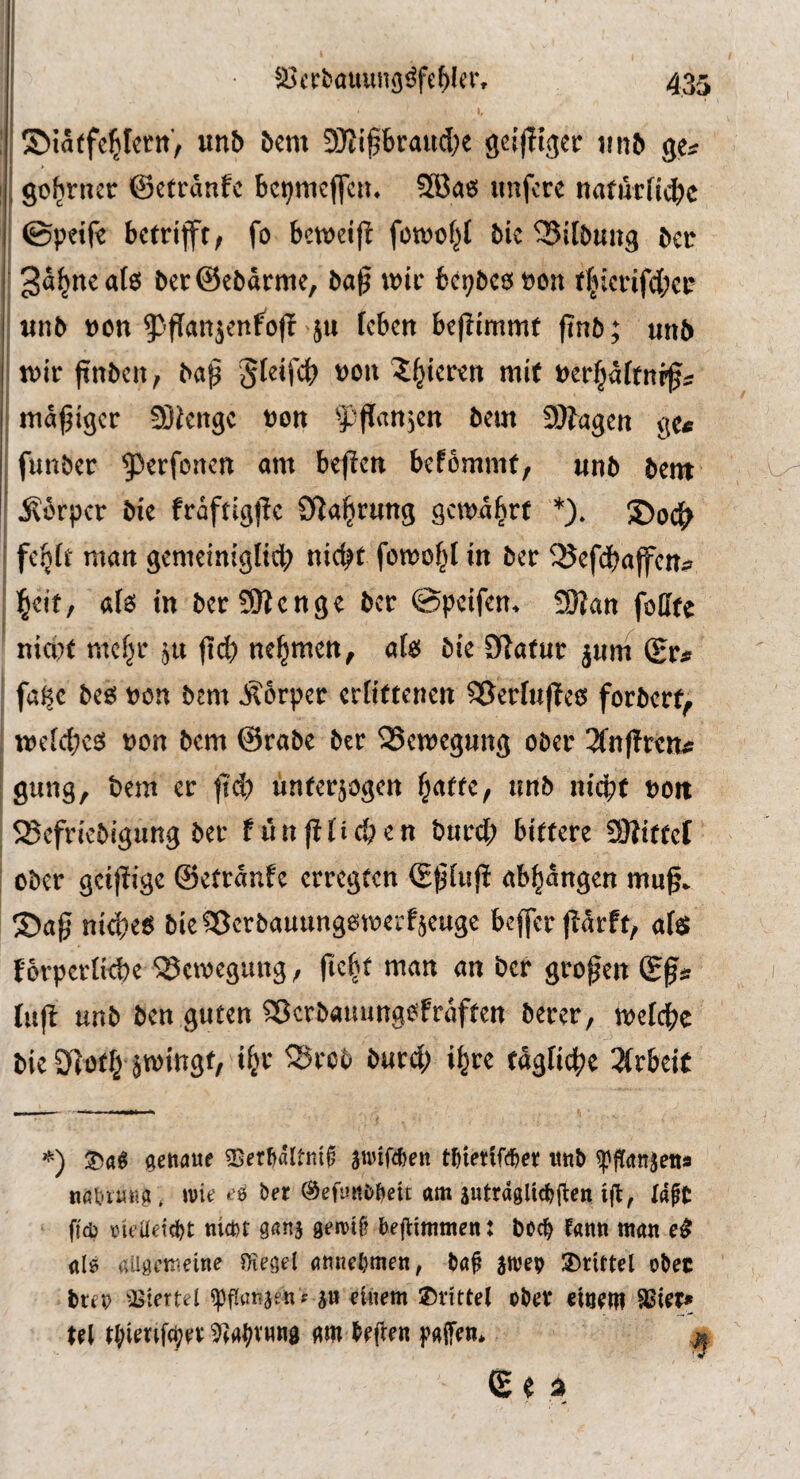 Verdauungsfehler. 435
Diätfehlern, und dem Mißbrauche geistiger und ge-
gohrner Getränke beymessen. Was unsere natürliche
Speise betrifft, so beweist sowohl die Bildung der
Zähne als der Gedärme, daß wir beydes von thierischer
und von Pflanzenkost zu leben bestimmt sind; und
wir finden, daß Fleisch von Thieren mit verhältniß-
mäßiger Menge von Pflanzen dem Magen ge-
sunder Personen am besten bekömmt, und dem
Körper die kräftigste Nahrung gewährt *). Doch
fehlt man gemeiniglich nicht sowohl in der Beschaffen-
heit, als in der Menge der Speisen. Man sollte
nicht mehr zu sich nehmen, als die Natur zum Er-
satze des von dem Körper erlittenen Verlustes fordert,
welches von dem Grade der Bewegung oder Anstren-
gung, dem er sich unterzogen hatte, und nicht von
Befriedigung der künstlichen durch bittere Mittel
oder geistige Getränke erregten Eßlust abhängen muß.
Daß nichts die Verdauungswerkzeuge besser stärkt, als
körperliche Bewegung, sieht man an der großen Eß-
lust und den guten Verdauungskräften derer, welche
die Noth zwingt, ihr Brod durch ihre tägliche Arbeit
*) Das genaue Verhältniß zwischen thierischer und Pflanzen-
nahrung, wie es der Gesundheit am zuträglichsten ist, läßt
sich vielleicht nicht ganz gewiß bestimmen: doch kann man es
als allgemeine Regel annehmen, daß zwey Drittel oder
drey Viertel Pflanzen- zu einem Drittel oder einem Vier-
tel thierischer Nahrung am besten passen.
Ee 2